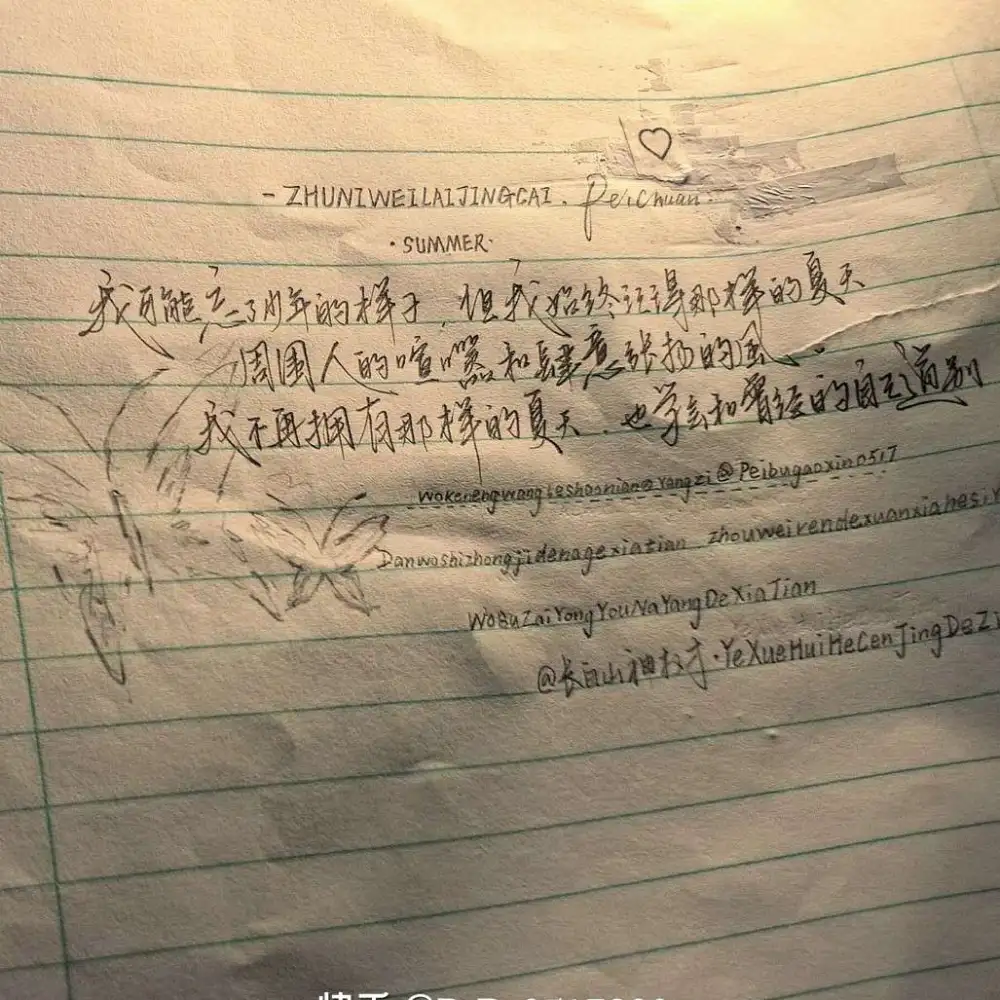 - ZHUNIWEILAIJINGCAI. Peichuan.
·SUMMER·
我可能忘了少年的样子,但我始终记得那样的夏天
周围人的喧嚣和肆意张扬的风.
我不再拥有那样的夏天.也学会和曾经的自己道别
@Peibugaoxin0517
Danwoshizhongjidenagexiatian zhouweirendexuanxiahesiy
WoBuZaiYongYouNaYangDeXiaTian
@长白山神 ·YeXueHuiHeCenJingDeZi
快手